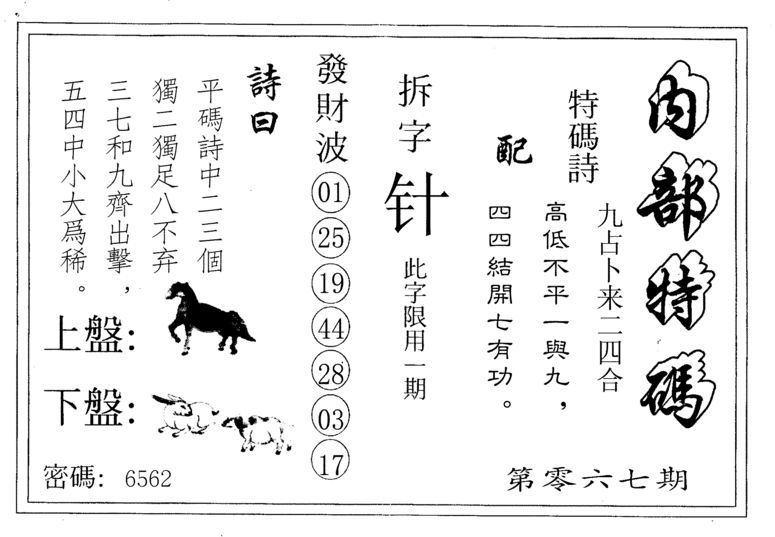 內部特碼
第零六七期
特碼詩
九占卜来二四合
高低不平一與九，
配
四四結開七有功。
拆字
针
此字限用一期
發財波
01
25
19
44
28
03
17
詩曰
平碼詩中二三個
獨二獨足八不弃
三七和九齊出擊，
五四中小大爲稀。
上盤：
下盤：
密碼：6562